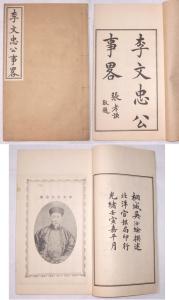 李文忠公事畧
李文忠公
事畧
張孝謙
敬題
桐城吳汝綸撰述
北洋官報局印行
光緒壬寅嘉平月